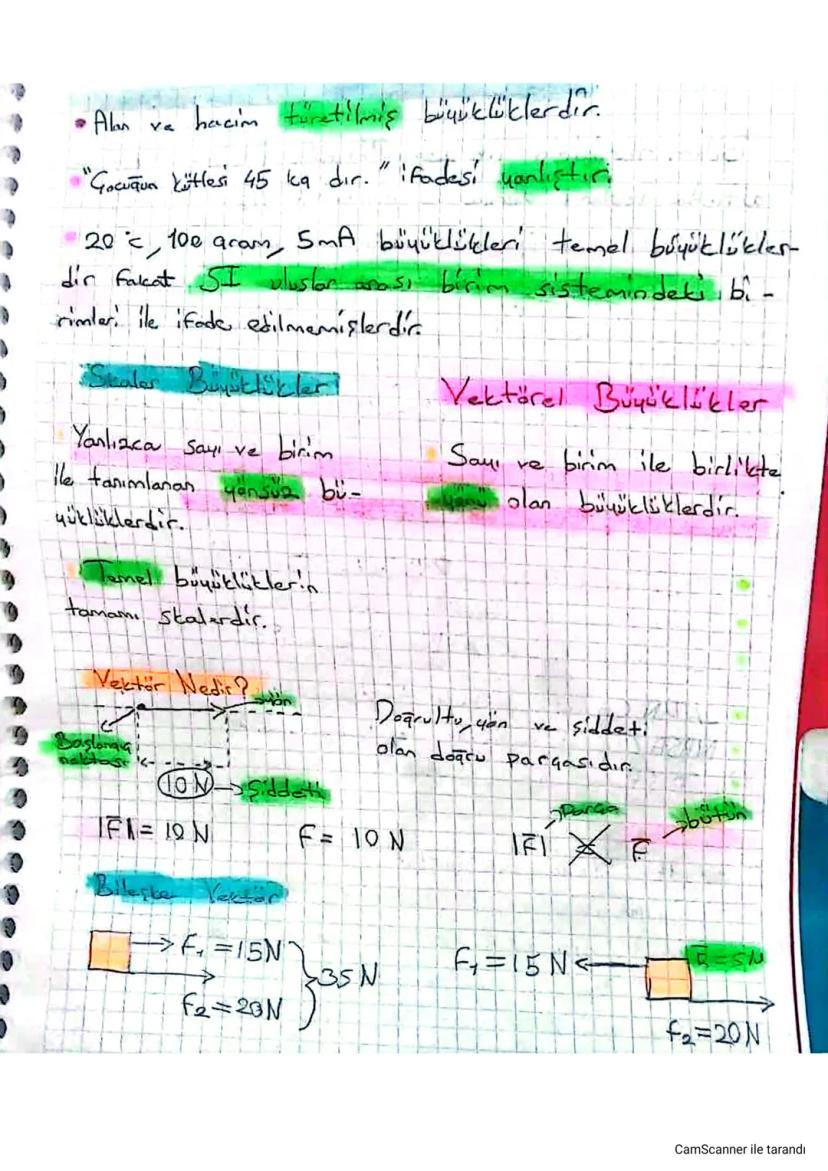 • Alan ve hacim türetilmiş büyüklüklerdir.
• "Çocuğun kütlesi 45 kg dır." ifadesi yanlıştır.
• 20 °C, 100 gram, 5mA büyüklükleri temel büyüklükler-
dir fakat SI uluslar arası birim sistemindeki bi-
rimleri ile ifade edilmemişlerdir.
Skaler Büyüklükler
Yanlızca sayı ve birim
ile tanımlanan yönsüz bü-
yüklüklerdir.
Temel büyüklüklerin
tamamı skalerdir.
Vektörel Büyüklükler
Sayı ve birim ile birlikte
yönü olan büyüklüklerdir.
Vektör Nedir?
yön
Başlangıç
noktası
10 N → Şiddeti
Doğrultu, yön ve şiddeti
olan doğru parçasıdır.
|F⃗| = 10 N
F = 10 N
parça
bütün
|F⃗|
F⃗
Bileşke Vektör
F₁ = 15N
F₂ = 20N
35 N
F₁ = 15 N
R = 5N
F₂ = 20 N
CamScanner ile tarandı